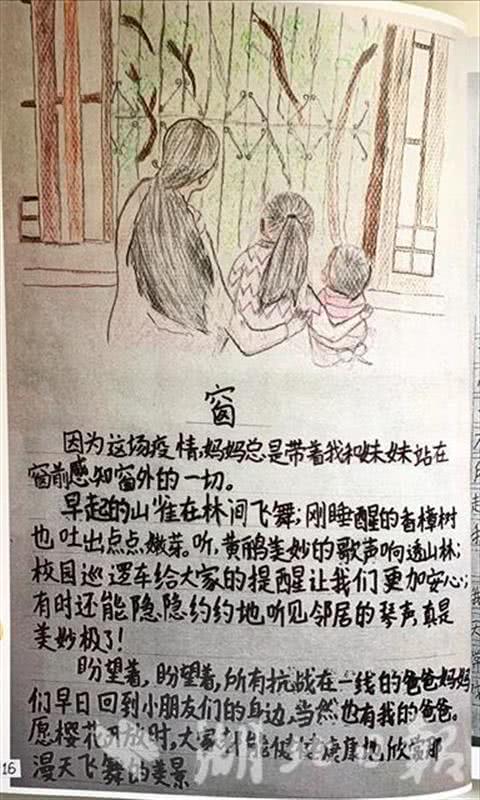 窗
因为这场疫情,妈妈总是带着我和妹妹站在
窗前感知窗外的一切。
早起的山雀在林间飞舞;刚睡醒的香樟树
也吐出点点嫩芽。听,黄鹂美妙的歌声响透山林;
校园巡逻车给大家的提醒让我们更加安心;
有时还能隐隐约约地听见邻居的琴声,真是
美妙极了!
盼望着,盼望着,所有抗战在一线的爸爸妈妈
们早日回到小朋友们的身边,当然也有我的爸爸。
愿樱花开放时,大家都能健健康康地欣赏那
漫天飞舞的美景
16